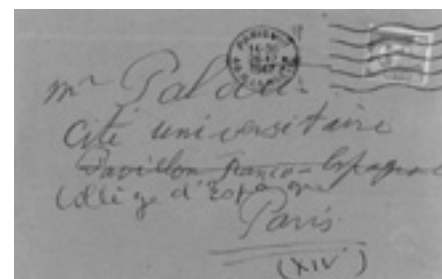 PARIS
1947
Mr Palau.
Cité universitaire
Pavillon franco-Espagnol
Collège d'Espagne
Paris
(XIV)